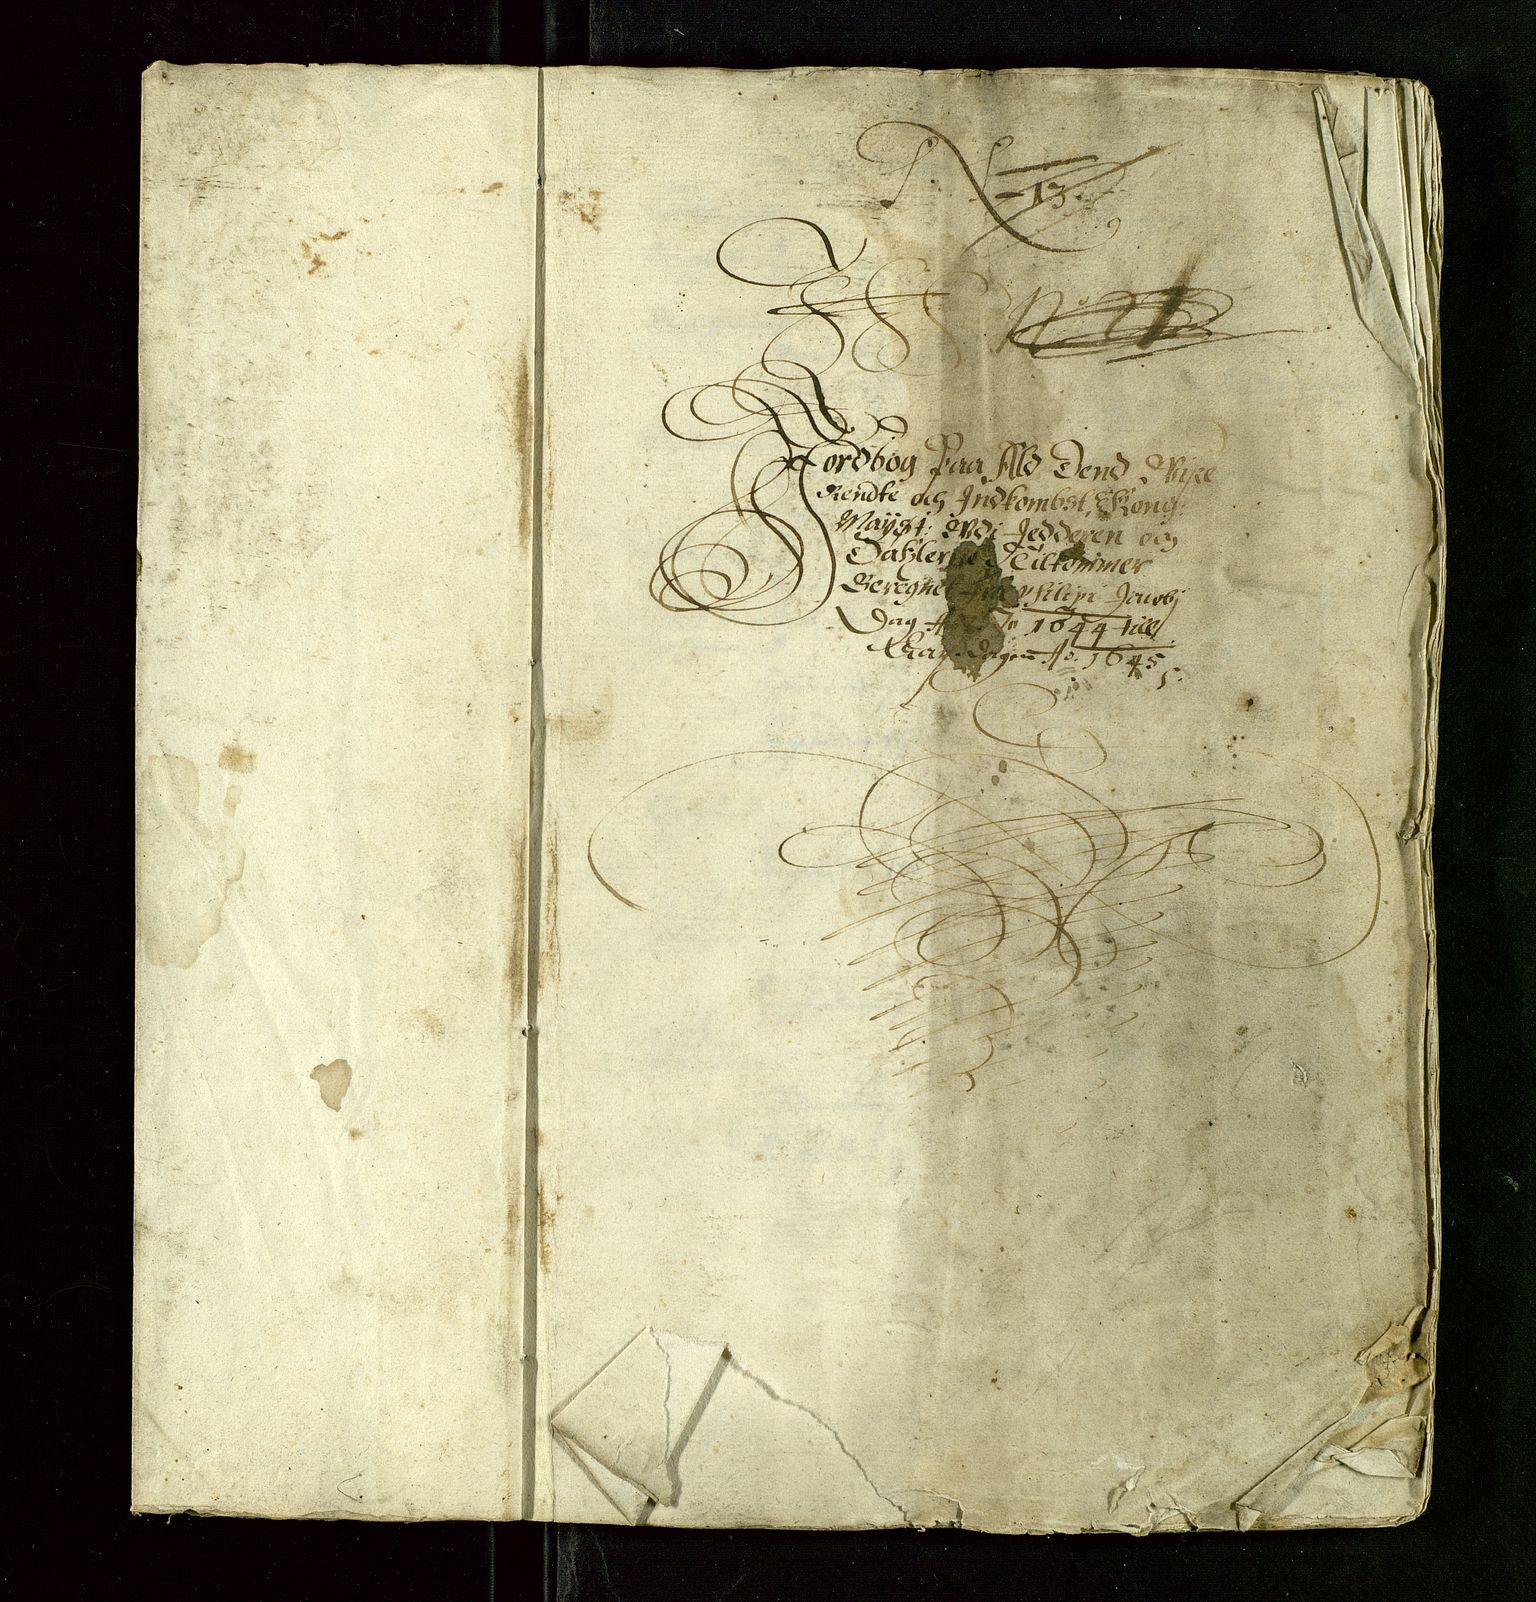 N 13.
No
Jordbog Paa Ald Dend Visse
Rendte och Indkombst, Kong:
Mayst: Udi Jedderen och
Dahlerne Tilkommer
Beregnet fra Philipi Jacobj
Dag Ao 1644 till
Dagen Ao. 1645